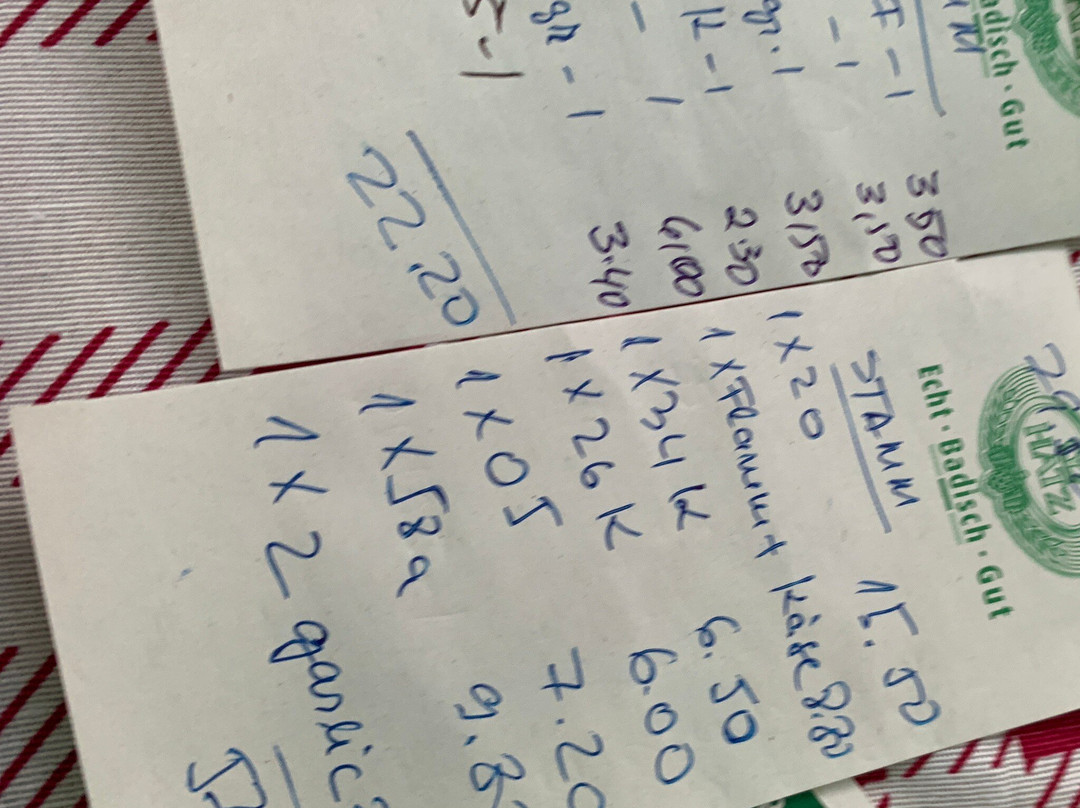 Badisch · Gut
7 - 1 3,50
- 1 3,50
gr. 1 3,50
K - 1 2.30
- 1 6,00
gr - 1 3.40
5 - 1
22.20
HATZ
Echt · Badisch · Gut
STAMM
1 x 20 15.50
1 x Flammt Käse 8.80
1 x 34 K 6.50
1 x 26 K 6.00
1 x 05 7.20
1 x 58a 9.8
1 x 2 garlic